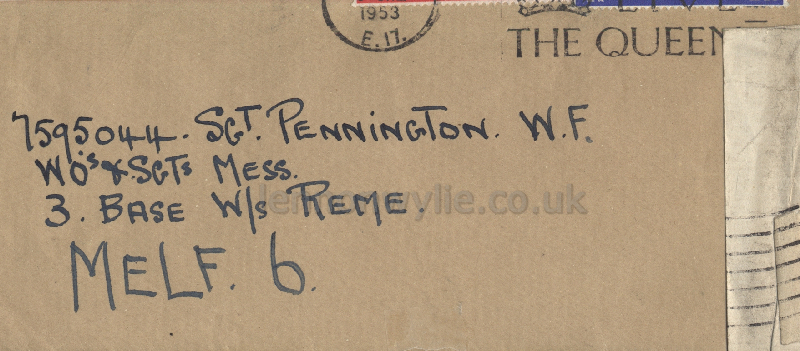 1953
E.17.
LIVE
THE QUEEN
7595044. SGT. PENNINGTON. W.F.
W.O's & SGTs MESS.
3. BASE W/s REME.
MELF. 6.